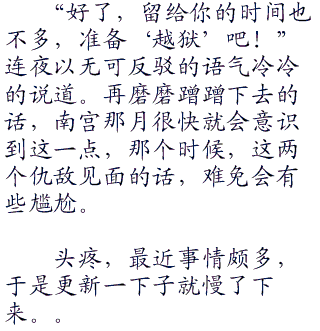 “好了，留给你的时间也
不多，准备‘越狱’吧！”
连夜以无可反驳的语气冷冷
的说道。再磨磨蹭蹭下去的
话，南宫那月很快就会意识
到这一点，那个时候，这两
个仇敌见面的话，难免会有
些尴尬。
头疼，最近事情颇多，
于是更新一下子就慢了下
来。。